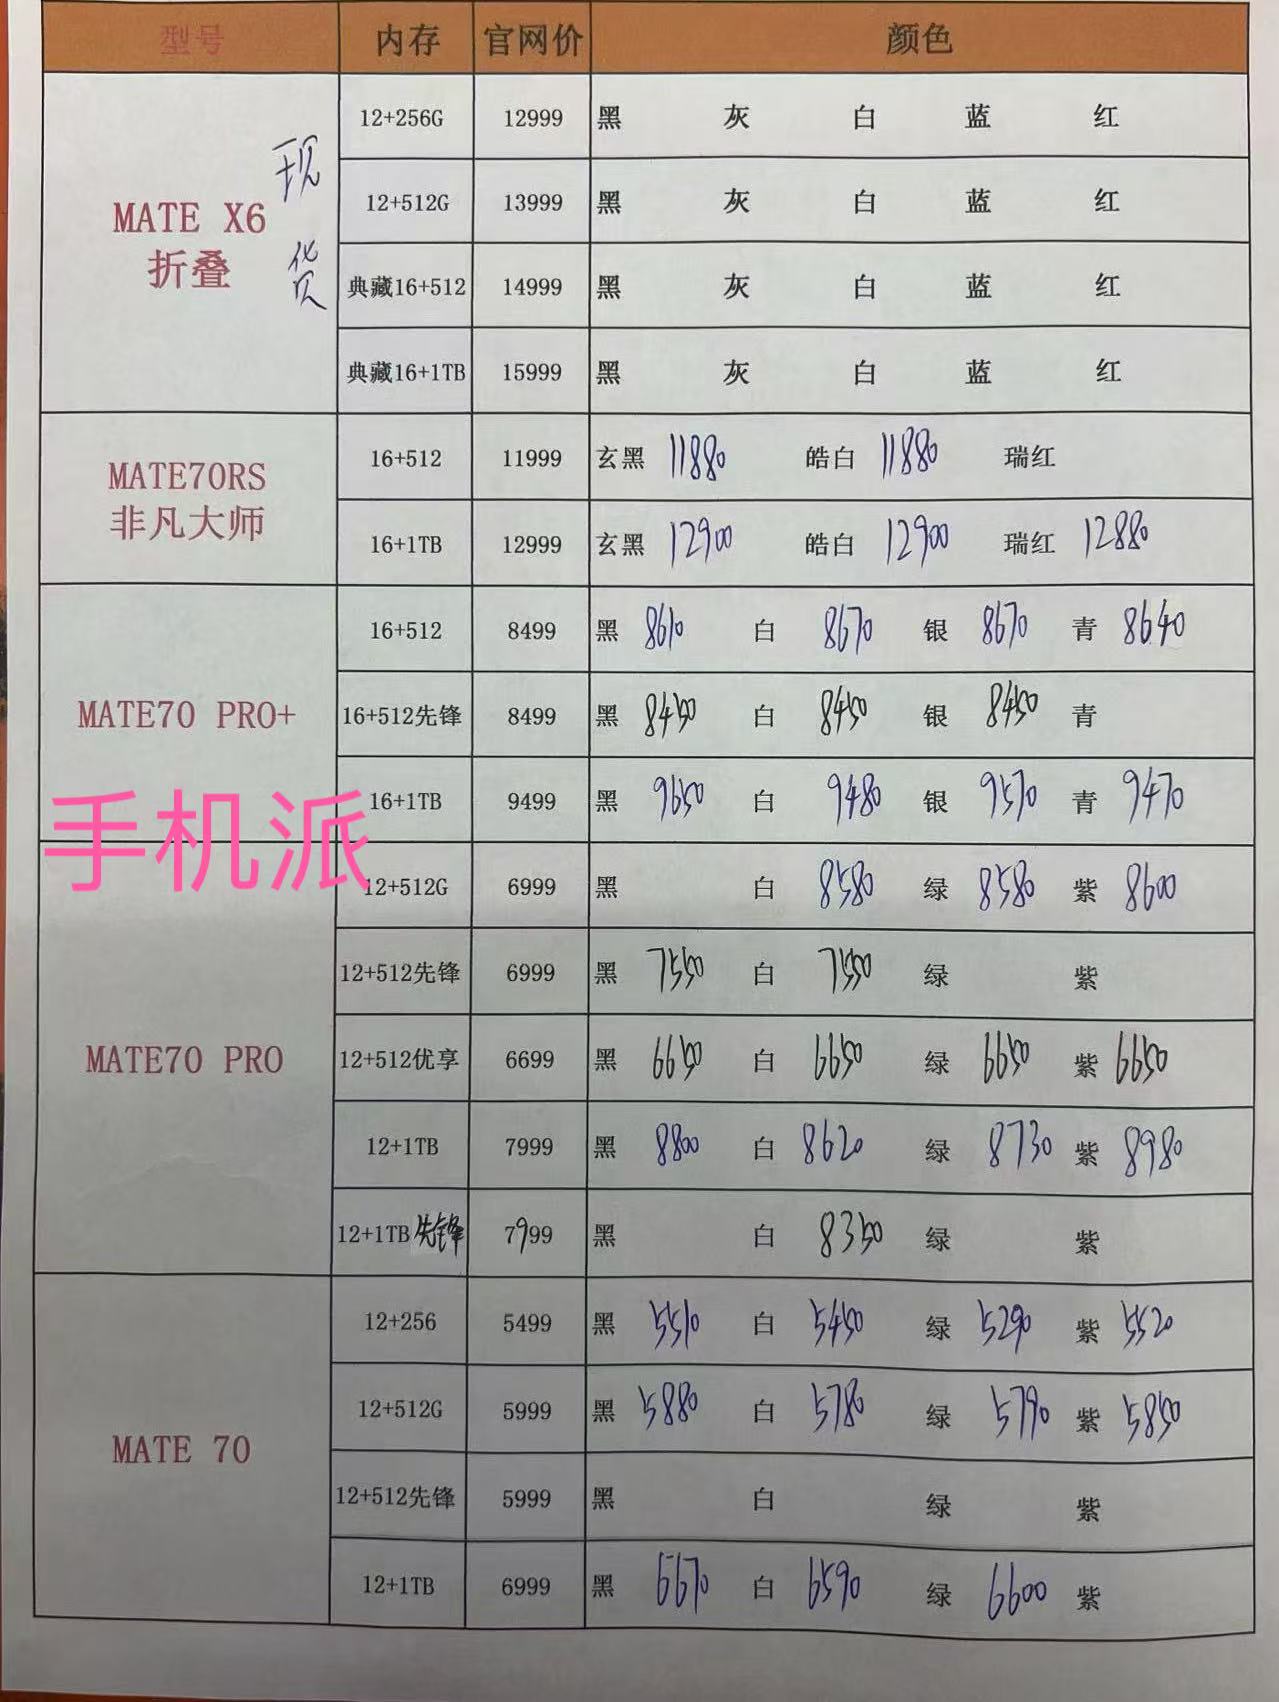 型号 内存 官网价 颜色
MATE X6 折叠 现货
12+256G 12999 黑 灰 白 蓝 红
12+512G 13999 黑 灰 白 蓝 红
典藏16+512 14999 黑 灰 白 蓝 红
典藏16+1TB 15999 黑 灰 白 蓝 红
MATE70RS 非凡大师
16+512 11999 玄黑 11880 皓白 11880 瑞红
16+1TB 12999 玄黑 12900 皓白 12900 瑞红 12880
MATE70 PRO+
16+512 8499 黑 8610 白 8670 银 8670 青 8640
16+512先锋 8499 黑 8450 白 8450 银 8450 青
16+1TB 9499 黑 9650 白 9480 银 9570 青 9470
手机派
MATE70 PRO
12+512G 6999 黑 白 8580 绿 8580 紫 8600
12+512先锋 6999 黑 7550 白 7550 绿 紫
12+512优享 6699 黑 6650 白 6650 绿 6650 紫 6650
12+1TB 7999 黑 8800 白 8620 绿 8730 紫 8980
12+1TB先锋 7999 黑 白 8350 绿 紫
MATE 70
12+256 5499 黑 5510 白 5450 绿 5290 紫 5520
12+512G 5999 黑 5880 白 5780 绿 5790 紫 5850
12+512先锋 5999 黑 白 绿 紫
12+1TB 6999 黑 6670 白 6590 绿 6600 紫